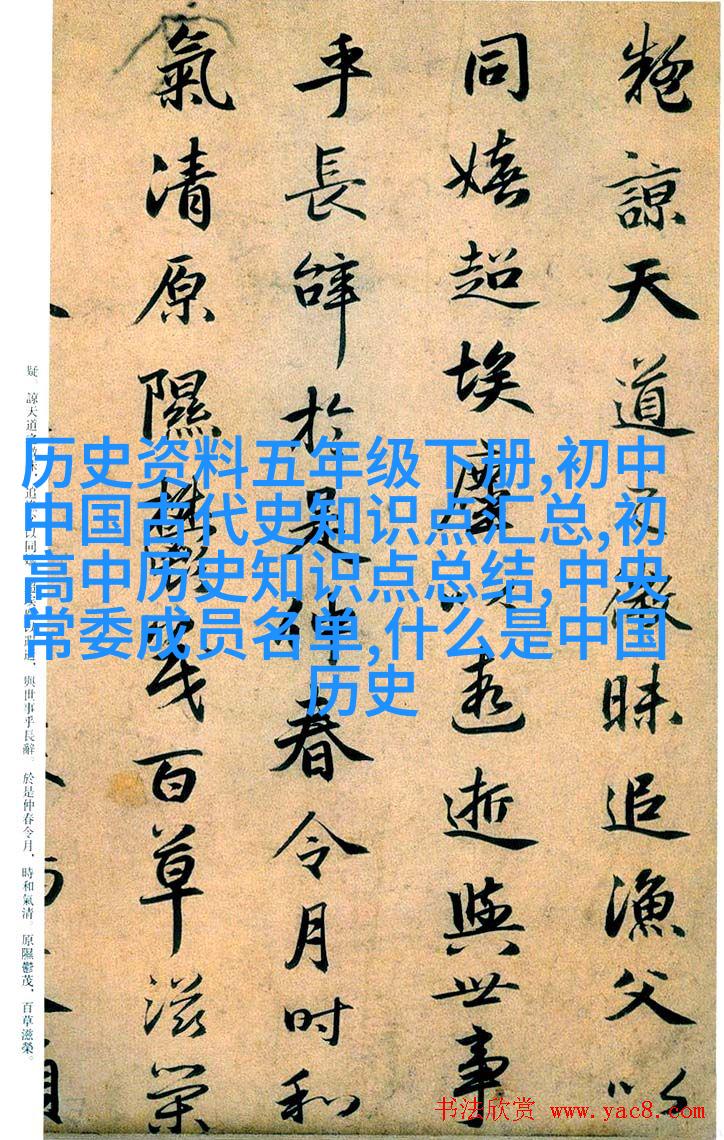 疑諒天道之微昧追漁父以
同嬉超埃塵以遐逝與世事
乎長辭於是仲春令月時和
氣清原隰鬱茂百草滋榮
疑。諒天道 追 以同 與世事乎長辭。於是仲春令月，時和氣清。原隰鬱茂，百草滋榮。
历史资料五年级下册,初中
中国古代史知识点汇总,初
高中历史知识点总结,中央
常委成员名单,什么是中国
历史
书法欣赏 www.yac8.com